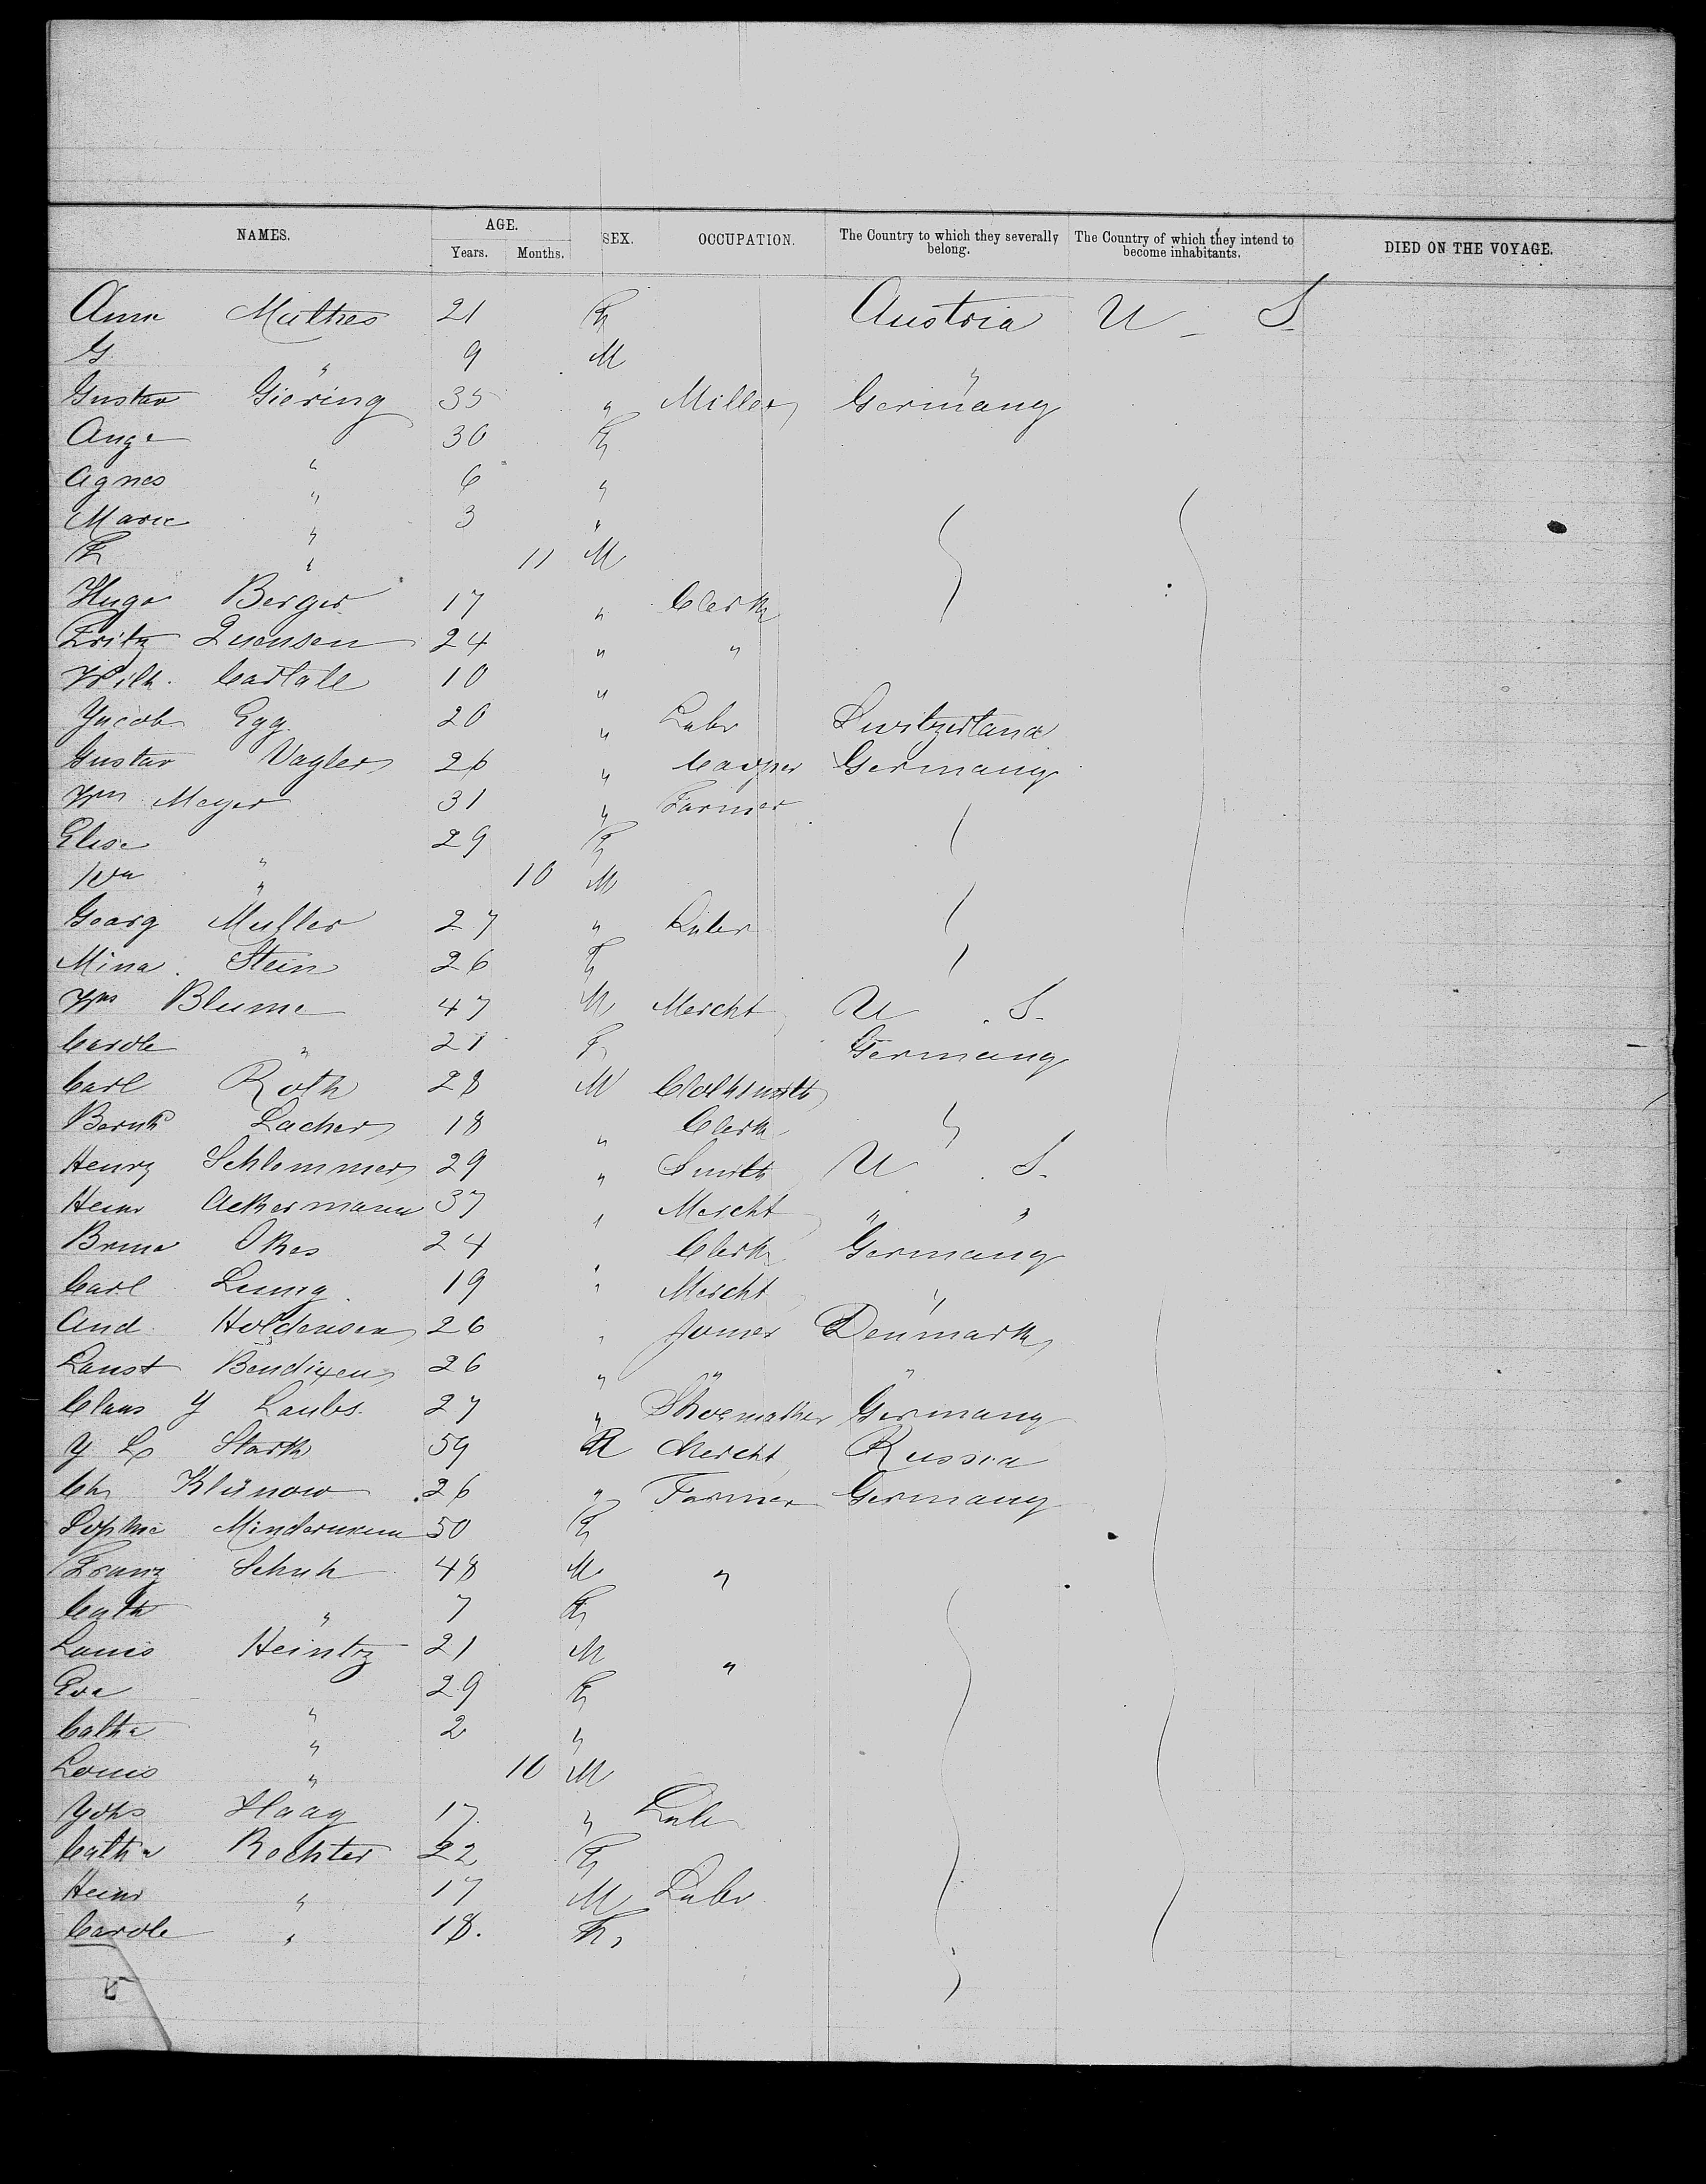 NAMES. AGE. SEX. OCCUPATION. The Country to which they severally belong. The Country of which they intend to become inhabitants. DIED ON THE VOYAGE.
Years. Months.
Anna Mathes 21 F Austria U - S
G. " 9 M "
Gustav Giering 35 " Miller Germany
Auge " 30 F
Agnes " 6 "
Marie " 3 "
F " 11 M
Hugo Berger 17 " Clerk
Fritz Quensen 24 " "
Wilh. 10 "
Jacob Egg 20 " Labr Switzerland
Gustav Vagler 26 " Germany
Wm Meyer 31 " Farmer
Elise " 29 F
Wm " 10 M
Georg Muller 27 " Labr
Mina Stein 26 F
Wm Blume 47 M Mercht U . S.
Carole " 21 F Germany
Carl Roth 28 M
Bernhd Lacher 18 " Clerk
Henry Schlemmer 29 " Smith U . S.
Heinr Ackermann 37 " Mercht " "
Okes 24 " Clerk Germany
Carl 19 " Mercht "
And. Holdensen 26 " Denmark
Laust Bendixen 26 " " "
Claus J Laubs 27 " Shoemaker Germany
J Stark 59 M Mercht Russia
Ch Klünow 26 " Farmer Germany
Sophie Mindermann 50 F
Franz Schuh 48 M "
Cath " 7 F
Louis Heintz 21 M "
Eva " 29 F
Catha " 2 "
Louis " 10 M
Johs Haag 17 " Lab
Catha Rochter 22 F
Heinr " 17 M Labr
Carole " 18. F.